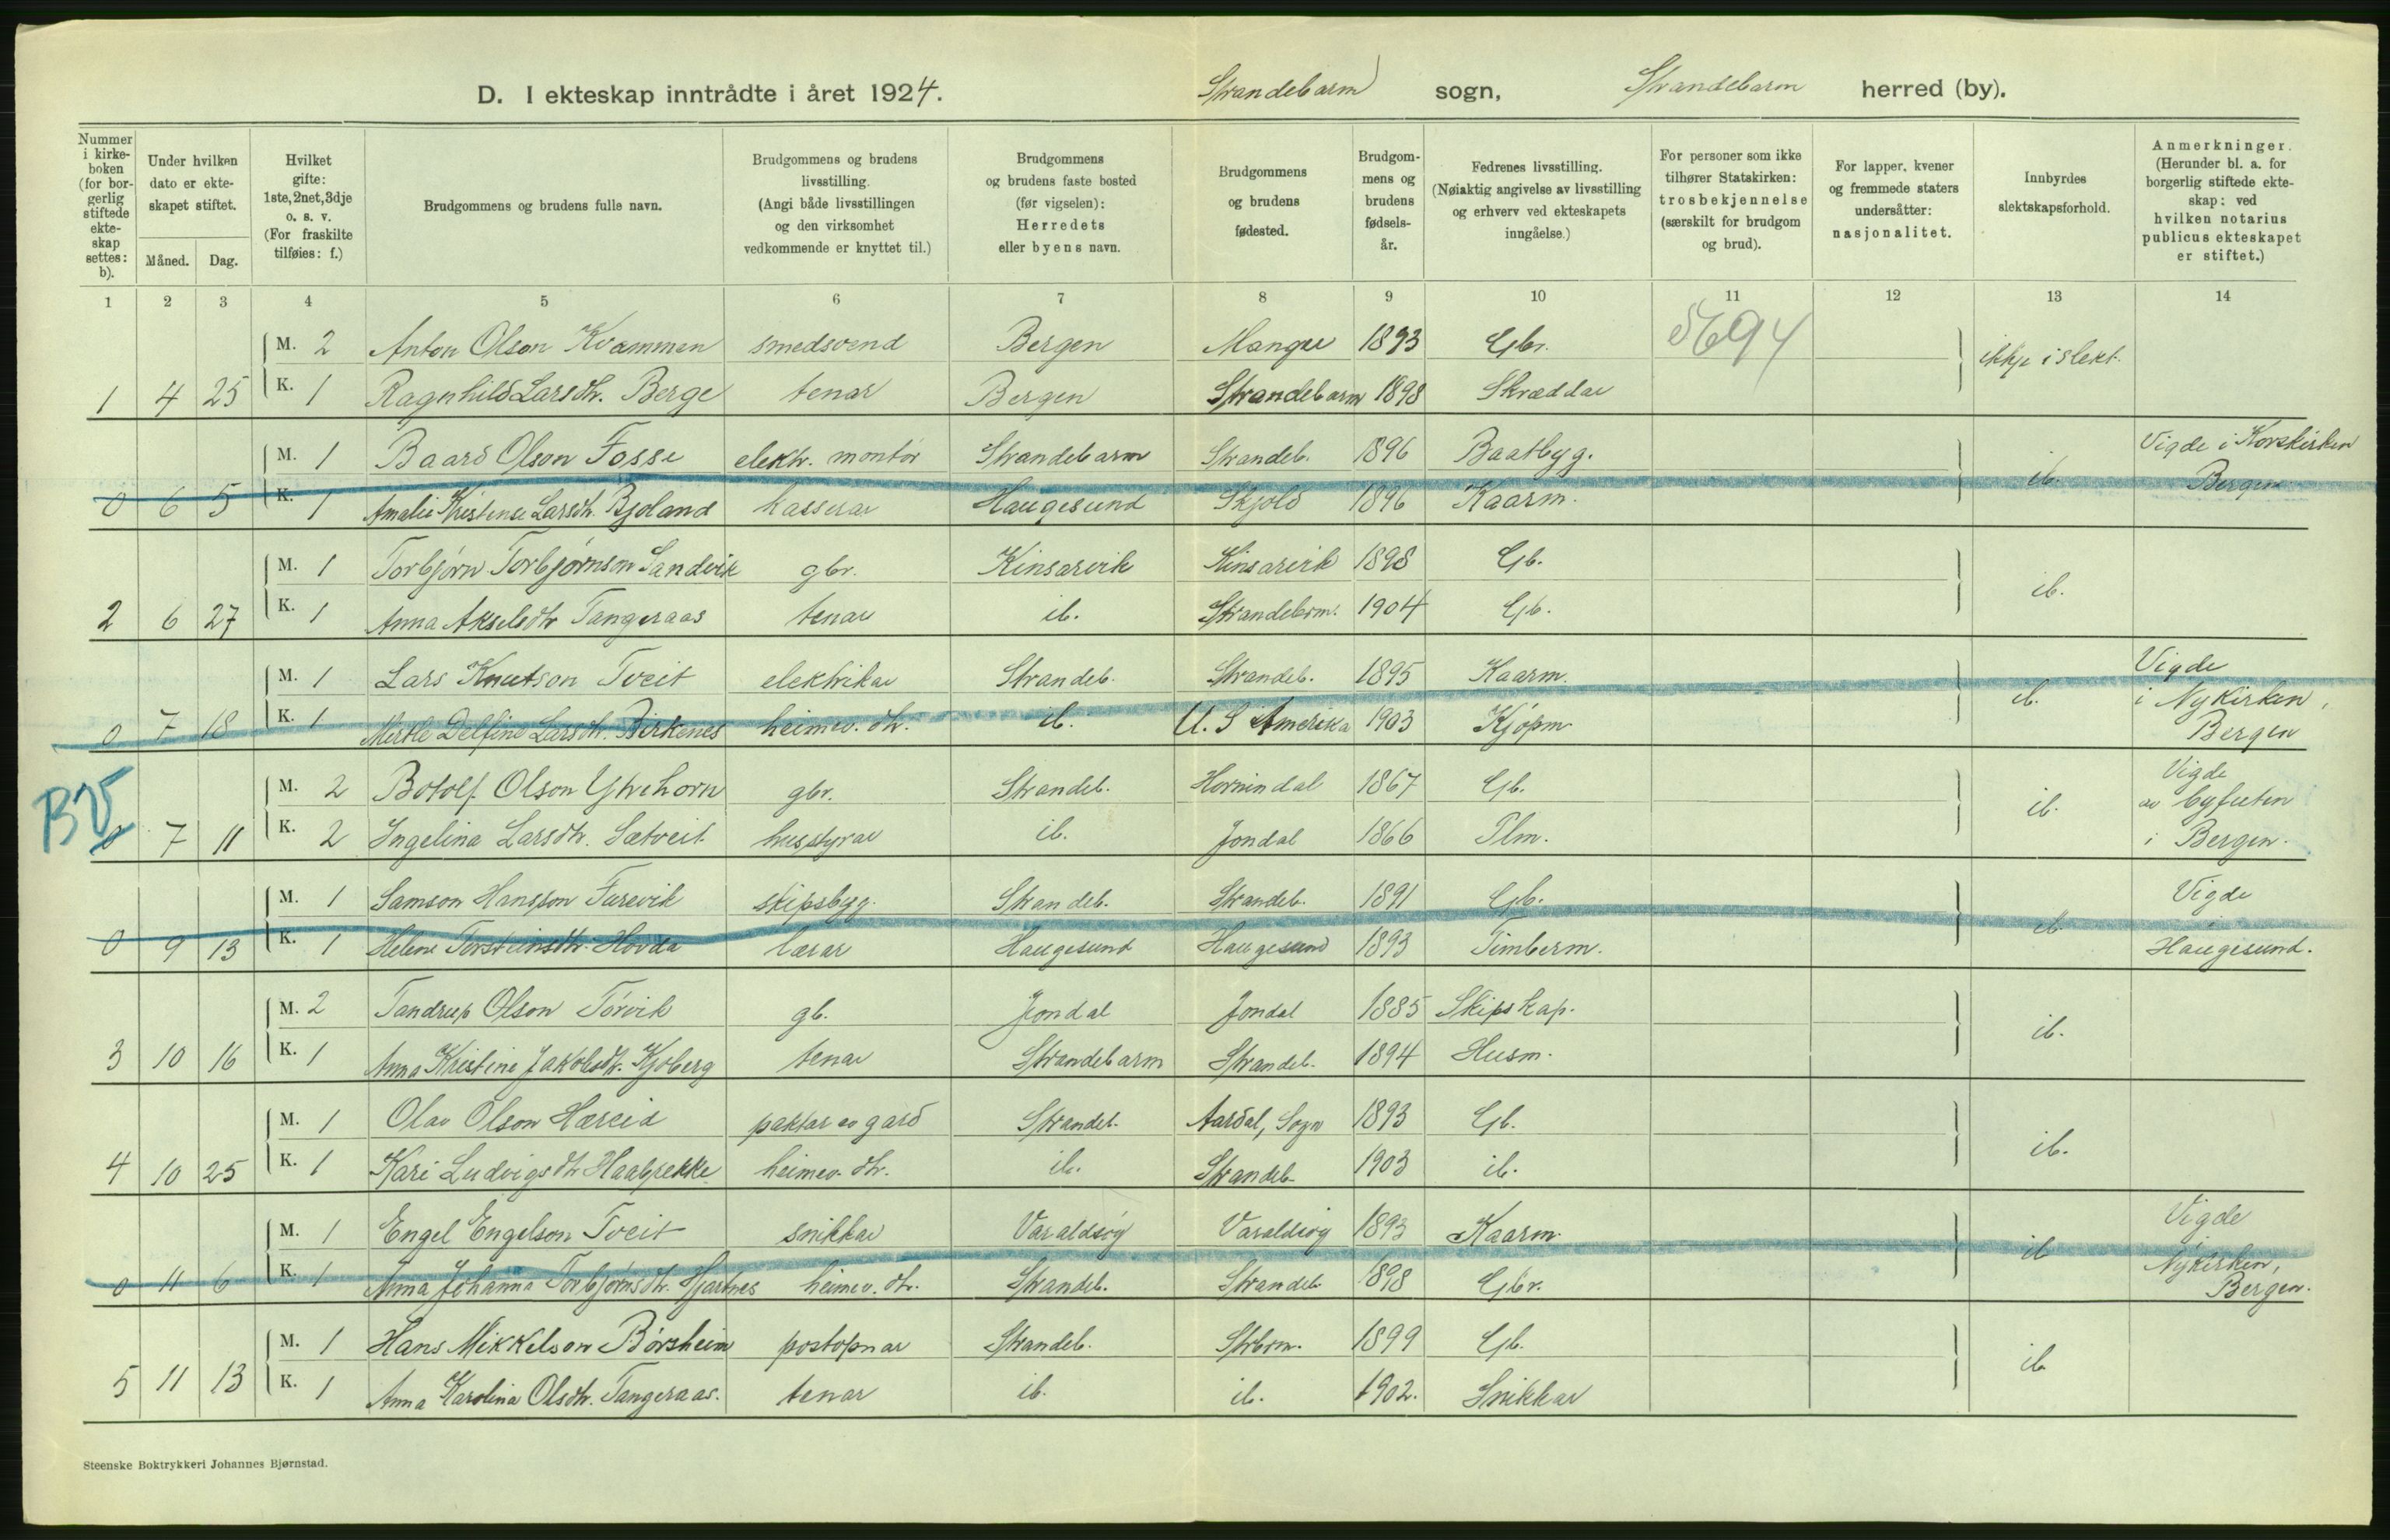 D. I ekteskap inntrådte i året 1924. Strandebarm sogn, Strandebarm herred (by).
Nummer i kirke-boken (for bor-gerlig stiftede ekte-skap settes: b).
Under hvilken dato er ekte-skapet stiftet.
Måned. Dag.
Hvilket gifte: 1ste, 2net, 3dje o. s. v. (For fraskilte tilføies: f.)
Brudgommens og brudens fulle navn.
Brudgommens og brudens livsstilling. (Angi både livsstillingen og den virksomhet vedkommende er knyttet til.)
Brudgommens og brudens faste bosted (før vigselen): Herredets eller byens navn.
Brudgommens og brudens fødested.
Brudgom-mens og brudens fødsels-år.
Fedrenes livsstilling. (Nøiaktig angivelse av livsstilling og erhverv ved ekteskapets inngåelse.)
For personer som ikke tilhører Statskirken: trosbekjennelse (særskilt for brudgom og brud).
For lapper, kvener og fremmede staters undersåtter: nasjonalitet.
Innbyrdes slektskapsforhold.
Anmerkninger. (Herunder bl. a. for borgerlig stiftede ekte-skap: ved hvilken notarius publicus ekteskapet er stiftet.)
1 2 3 4 5 6 7 8 9 10 11 12 13 14
M. 2 Anton Olson Kvammen smedsvend Bergen Manger 1893 Gbr. 5694 ikkje i slekt.
1 4 25 K. 1 Ragnhild Larsdtr. Berge tenar Bergen Strandebarm 1898 Skræddar
M. 1 Baard Olson Fosse elektr. montør Strandebarm Strandeb. 1896 Baatbyg. ib. Vigde i Korskirken
0 6 5 K. 1 Amalie Kristense Larsdtr. Bjoland kasserar Haugesund Skjold 1896 Kaarm. Bergen
M. 1 Torbjørn Torbjørnson Sandvik gbr. Kinsarvik Kinsarvik 1898 Gb. ib.
2 6 27 K. 1 Anna Akselsdtr Tangeraas tenar ib. Strandebrm. 1904 Gb.
M. 1 Lars Knutson Tveit elektrikar Strandeb. Strandeb. 1895 Kaarm. ib. Vigde i Nykirken,
0 7 18 K. 1 Mertle Delfine Larsdtr. Birkenes heimev. dtr. ib. U. S Amerika 1903 Kjøpm Bergen
BV
M. 2 Botolf Olson Ytrehorn gbr. Strandeb. Hornindal 1867 Gb. ib. Vigde av byfuten
0 7 11 K. 2 Ingelina Larsdtr. Sætveit husstyrar ib. Jondal 1866 Plm. i Bergen.
M. 1 Samson Hansson Furevik skipsbygg. Strandeb. Strandeb. 1891 Gb. ib. Vigde
0 9 13 K. 1 Helene Torsteinsdtr. Hovda lærar Haugesund Haugesund 1893 Timberm. i Haugesund.
M. 2 Tandrup Olson Tørvik gb. Jondal Jondal 1885 Skipskap. ib.
3 10 16 K. 1 Anna Kristine Jakobsdtr. Kjoberg tenar Strandebarm Strandeb. 1894 Husm.
M. 1 Olav Olson Hæreid paktar av gard Strandeb. Aardal, Sogn 1893 Gb. ib.
4 10 25 K. 1 Kari Ludvigsdtr Haabrekke heimev. dtr. ib. Strandeb. 1903 ib.
M. 1 Engel Engelson Tveit snikkar Varaldsøy Varaldsøy 1893 Kaarm. ib Vigde
0 11 6 K. 1 Anna Johanna Torbjørnsdtr. Hjartnes heimev. dtr. Strandeb. Strandeb. 1898 Gbr. Nykirken, Bergen.
M. 1 Hans Mikkelson Børsheim postopnar Strandeb. Strbrm. 1899 Gb. ib
5 11 13 K. 1 Anna Karolina Olsdtr. Tangeraas. tenar ib. ib. 1902. Snikkar
Steenske Boktrykkeri Johannes Bjørnstad.